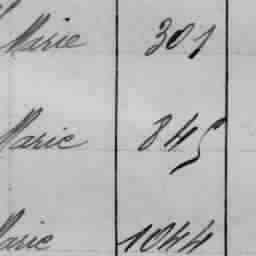 Marie 301
Marie 845
Marie 1044